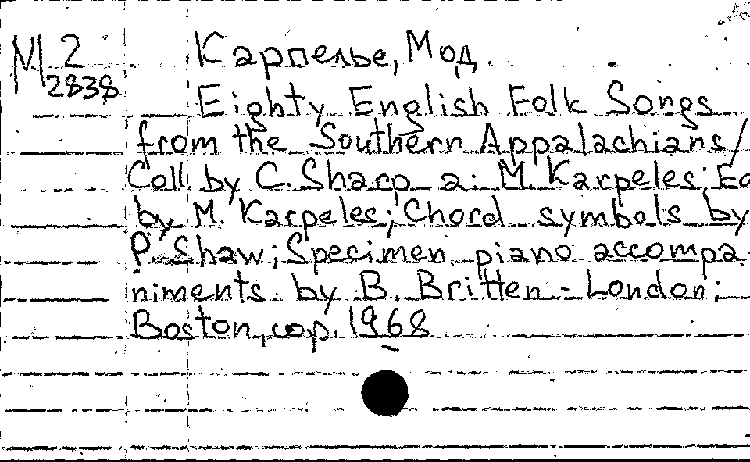 М 2
2838
Карпелье, Мод.
Eighty English Folk Songs
from the Southern Appalachians/
Coll. by C. Sharp a. M. Karpeles; Ed
by M. Karpeles; Chord symbols by
P. Shaw; Specimen piano accompa
niments by B. Britten - London;
Boston, cop. 1968